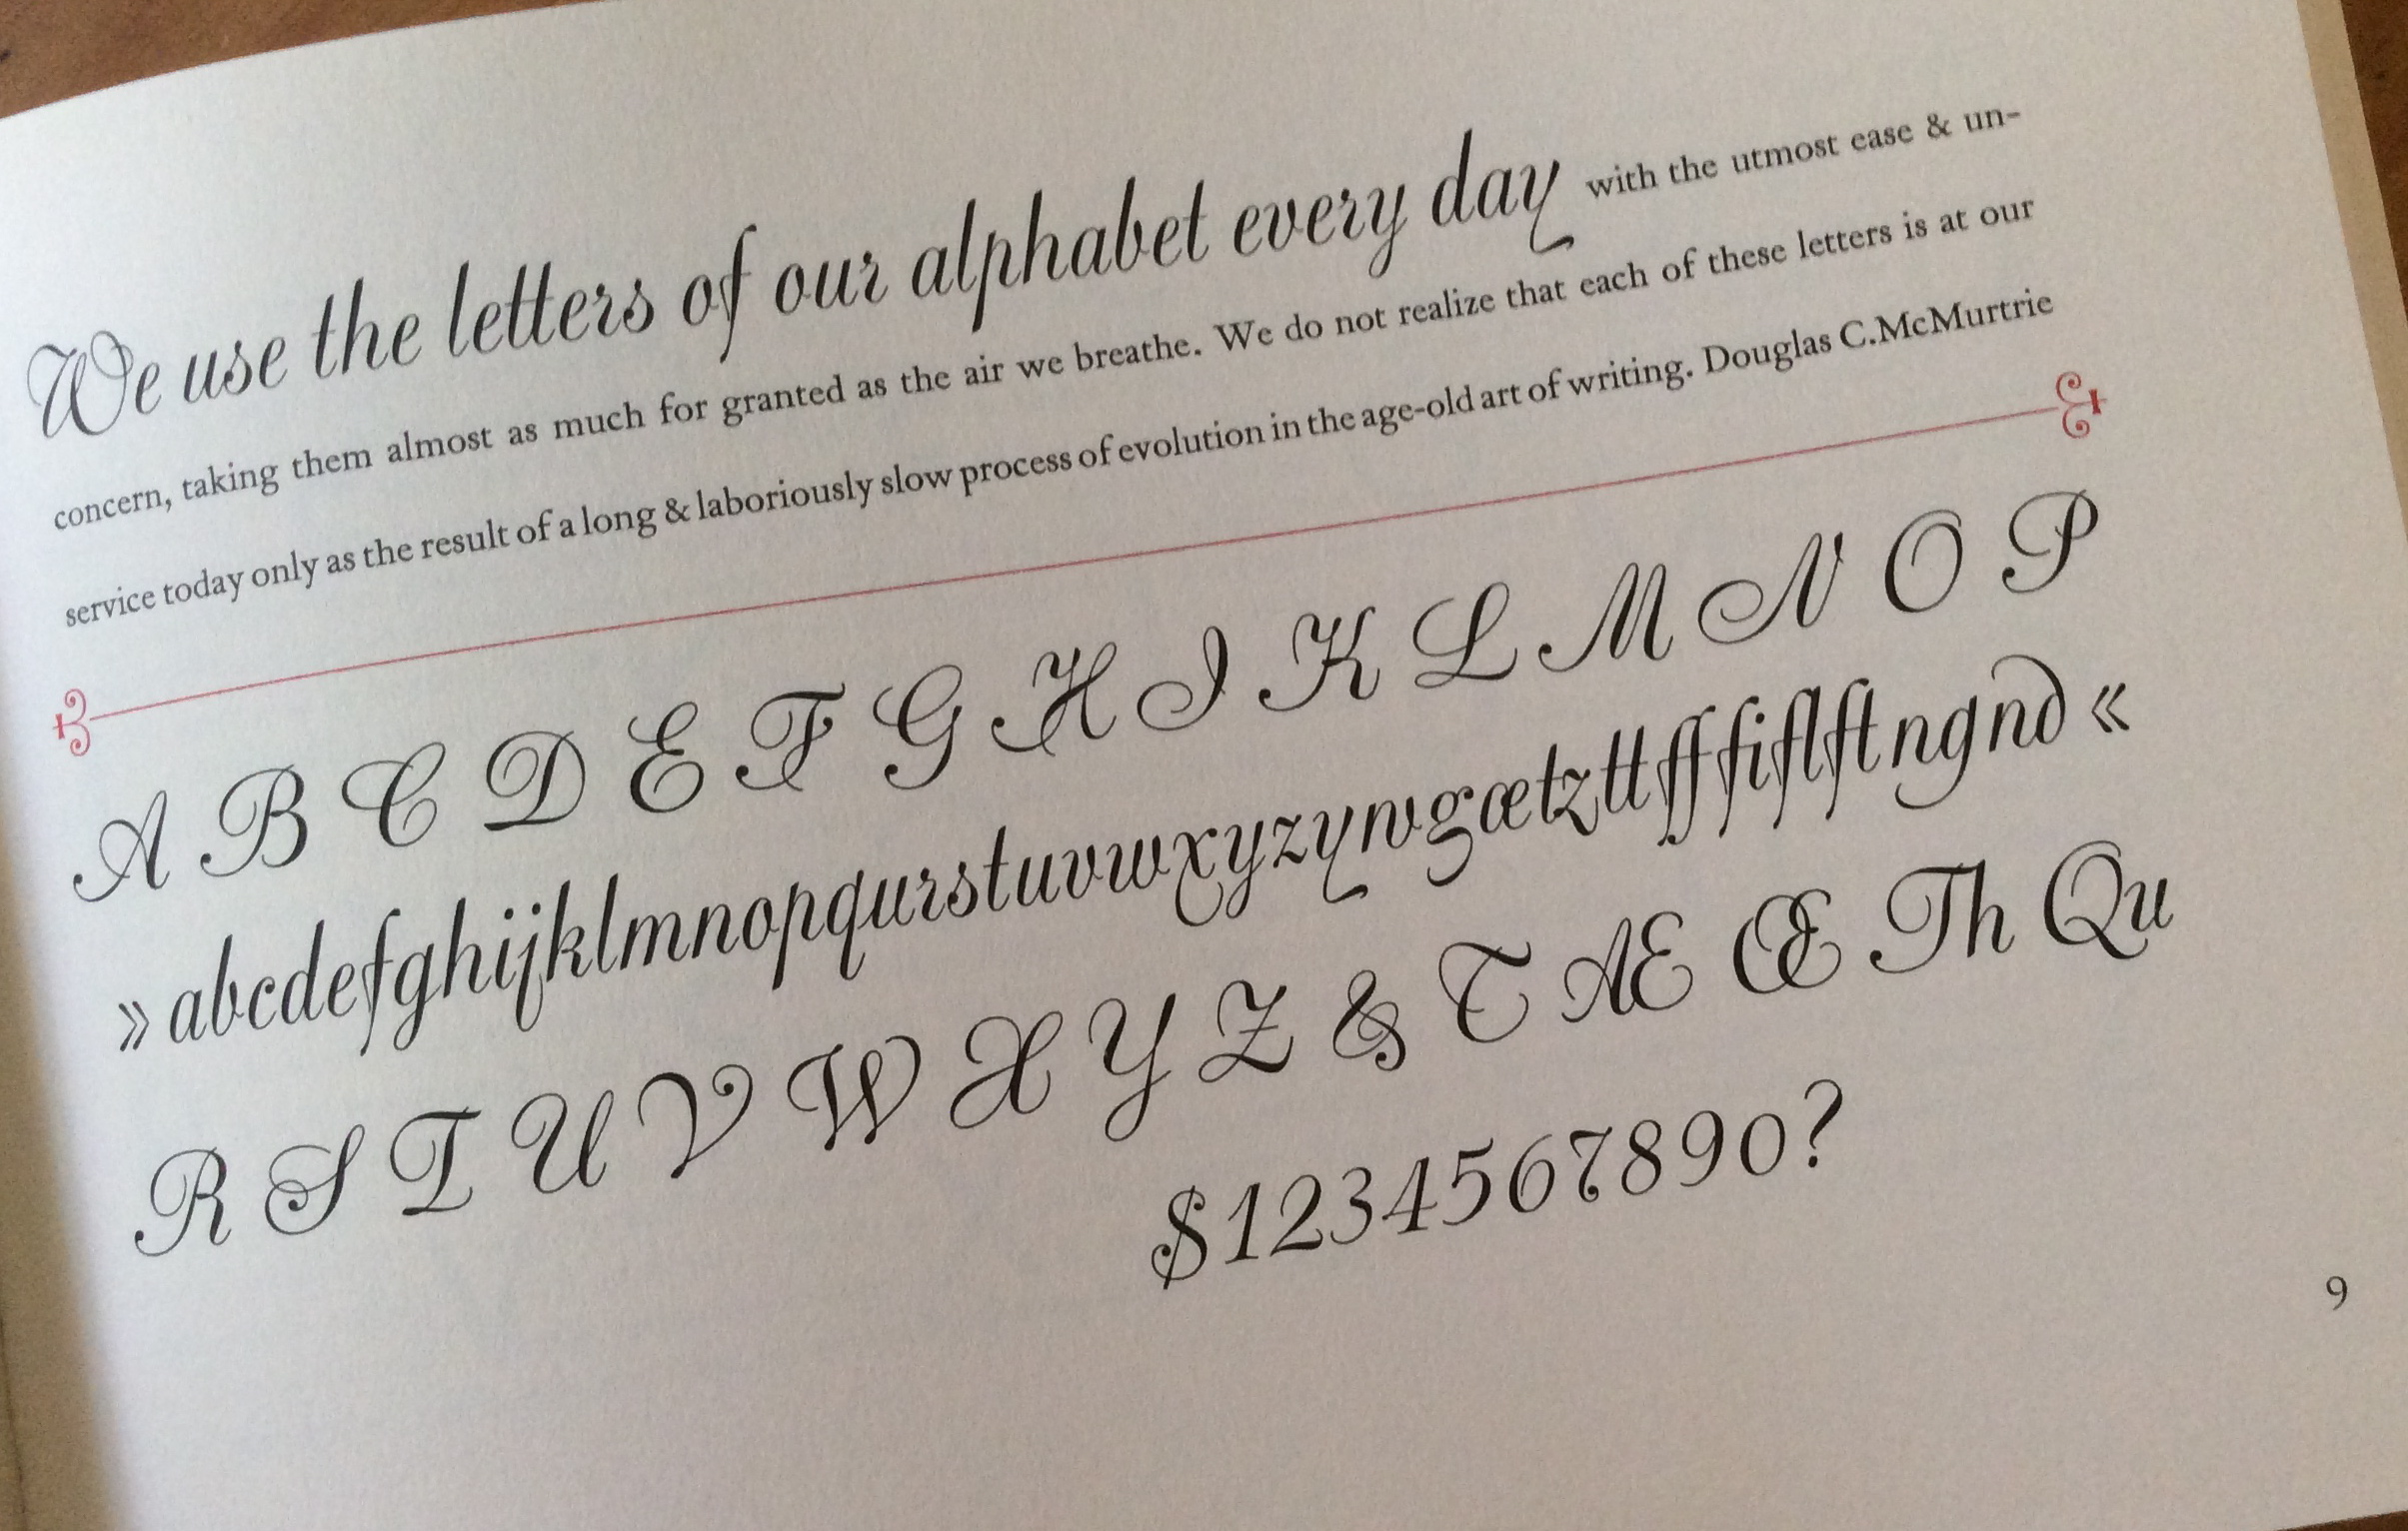 We use the letters of our alphabet every day with the utmost ease & un-
concern, taking them almost as much for granted as the air we breathe. We do not realize that each of these letters is at our
service today only as the result of a long & laboriously slow process of evolution in the age-old art of writing. Douglas C.McMurtrie
A B C D E F G H I K L M N O P
» abcdefghijklmnopqurstuvwxyzywgœtzttfffiflftngnd «
R S T U V W X Y Z & T Æ Œ Th Qu
$1234567890?
9